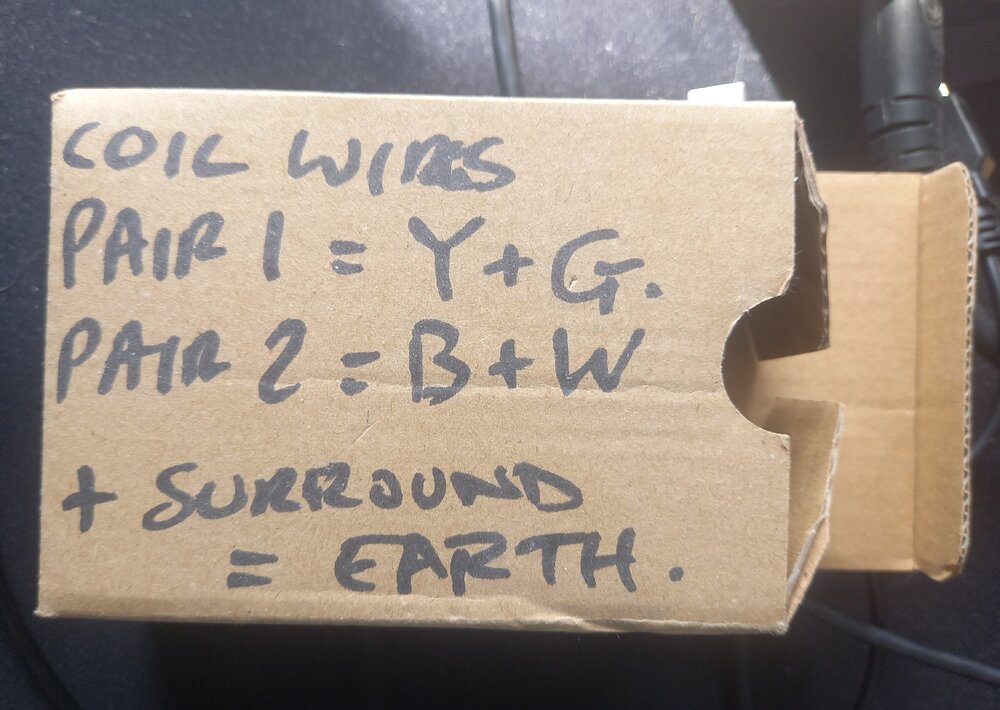 COIL WIRES
PAIR 1 = Y + G.
PAIR 2 = B + W
+ SURROUND
= EARTH.